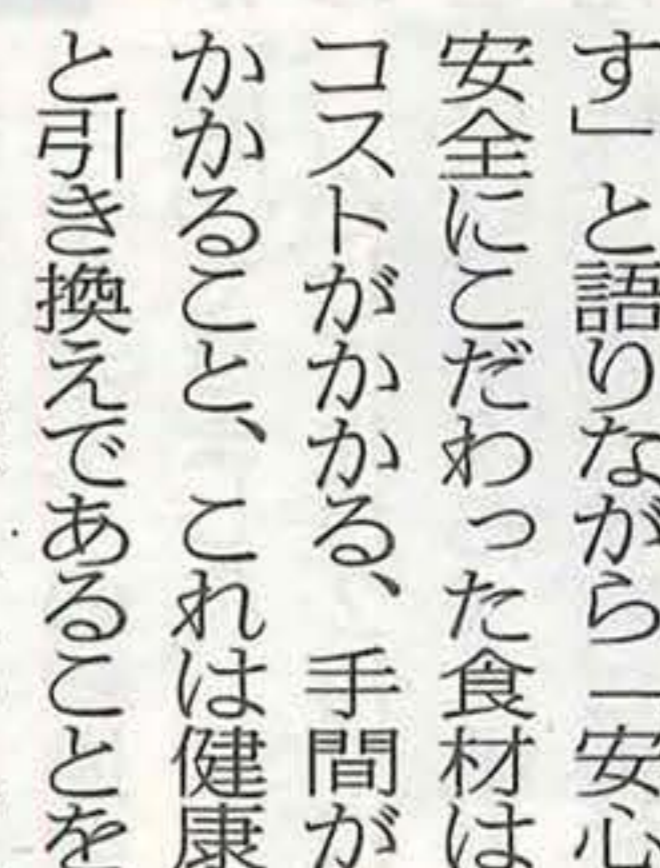 す」と語りながら「安心
安全にこだわった食材は
コストがかかる、手間が
かかること、これは健康
と引き換えであることを